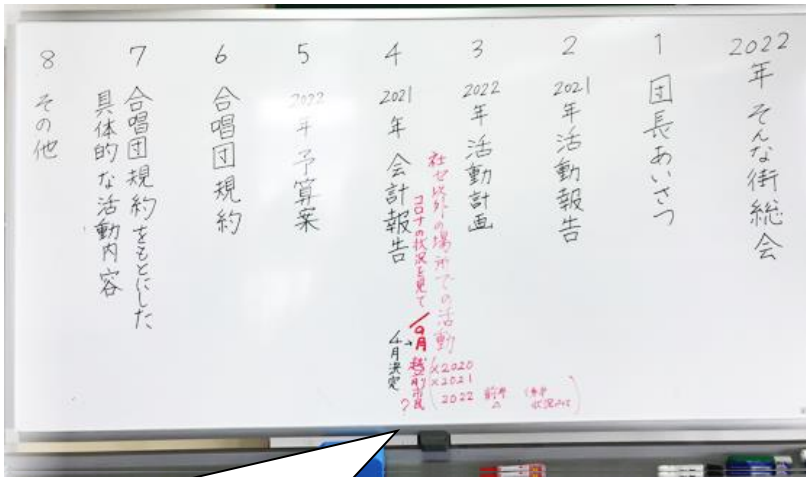 2022年 そんな街総会
1 団長あいさつ
2 2021年活動報告
3 2022年活動計画
社セ以外の場所での活動
コロナの状況を見て
9月
4月決定
×2020
×2021
2022
4 2021年 会計報告
5 2022年予算案
6 合唱団規約
7 合唱団規約をもとにした
具体的な活動内容
8 その他